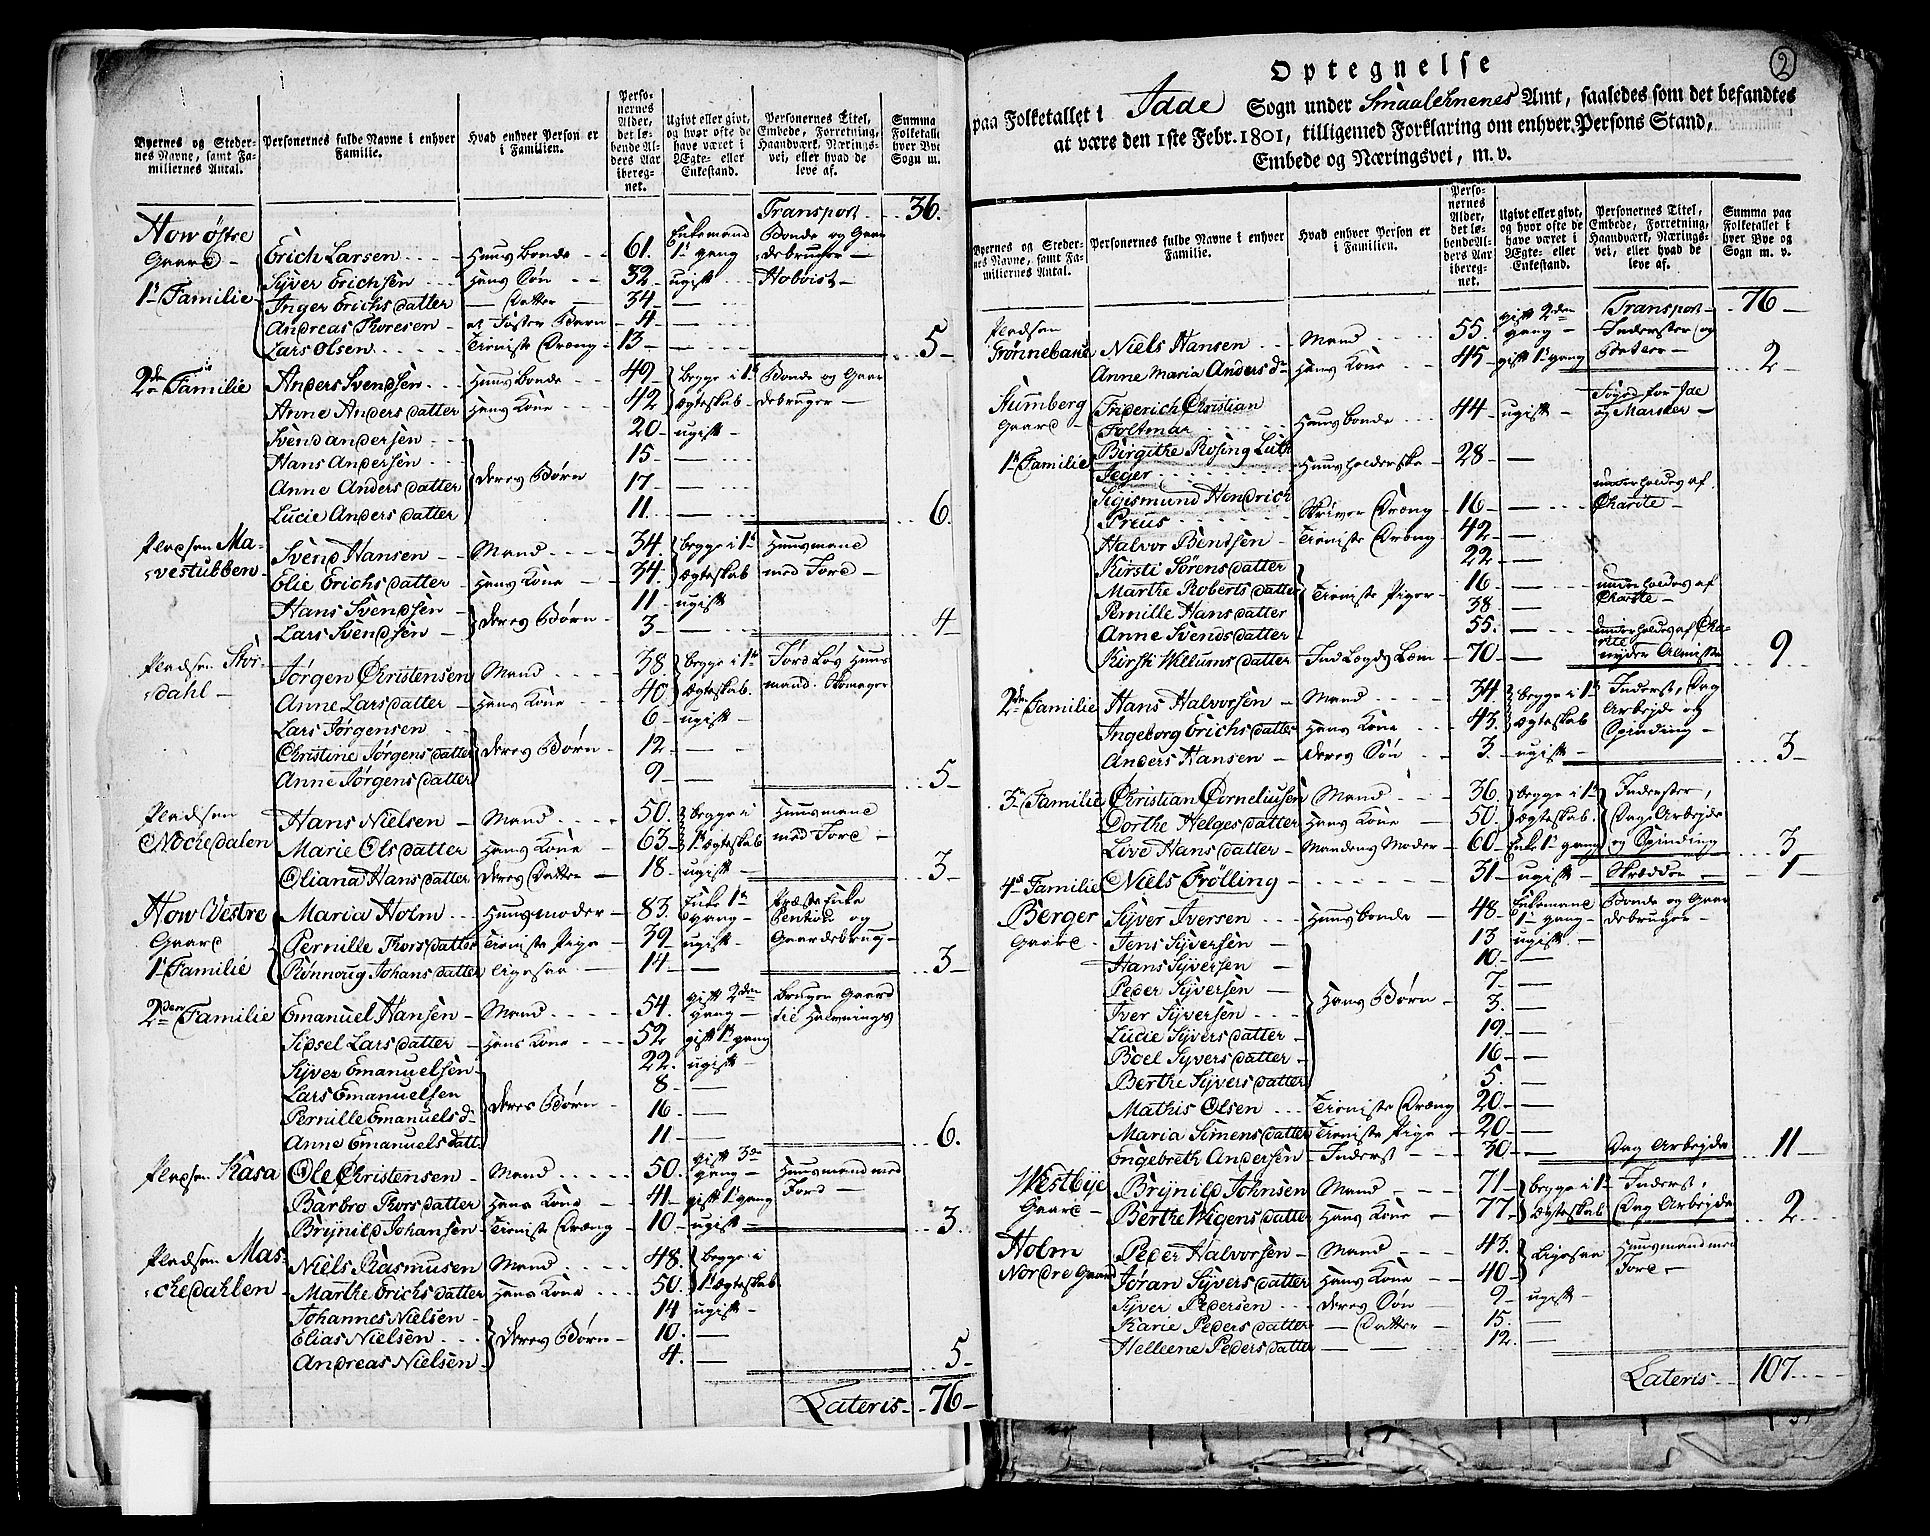 Byernes og Stedernes Navne, samt Familiernes Antal.
Personernes fulde Navne i enhver Familie.
Hvad enhver Person er i Familien.
Personernes Alder, det løbende Alders Aar iberegnet.
Ugivt eller givt, og hvor ofte de have været i Ægte- eller Enkestand.
Personernes Titel, Embede, Forretning, Haandværk, Næringsvei, eller hvad de leve af.
Summa Folketallet hver Bye Sogn m.
Transport 36.
How østre Gaard
1ste Familie
Erich Larsen Huus Bonde 61. Enkemand 1ste gang Bonde og Gaardebruger
Syver Erichsen Hans Søn 32 ugift
Inger Erichs datter — Datter 34 —
Andreas Thoresen et Foster Barn 4 —
Lars Olsen Tieniste Dreng 13 — 5
2den Familie
Anders Svendsen Huus Bonde 49 begge i 1ste Ægteskab Bonde og Gaardebruger
Anne Anders datter Hans Kone 42
Svend andersen deres Børn 20 ugift
Hans Andersen 15 —
Anne Anders datter 17 —
Lucie Anders datter 11 — 6.
Pladsen Mavestubben
Svend Hansen Mand 34. begge i 1ste Ægteskab Huusmand med Jord
Elie Erichs datter Hans Kone 34
Hans Svendsen deres Børn 11 ugift
Lars Svendsen 3 — 4
Pladsen Stordahl
Jørgen Christensen Mand 38. begge i 1ste Ægteskab. Jord Løs Huusmand. Skomager
Anne Lars datter Hans Kone 40
Lars Jørgensen deres Børn 6 ugift
Christine Jørgens datter 12 —
Anne Jørgens datter 9 — 5
Pladsen Nochedalen
Hans Nielsen Mand 50. begge i 1ste Ægteskab Huusmand med Jord
Marie Ols datter Hans Kone 63
Oliana Hans datter deres Datter 18 ugift 3
How Vestre Gaard
1ste Familie
Maria Holm Huusmoder 83. Enke 1ste gang Præste Enke Pention og Gaardebrug
Pernille Thors datter Tieniste Pige 39 ugift
Rønnoug Johans datter ligesaa 14 — 3
2den Familie
Emanuel Hansen Mand 54. gift 2den gang Bruger Gaard til Halvnings
Sidsel Lars datter Hans Kone 52 gift 1ste gang
Syver Emanuelsen deres Børn 22. ugift
Lars Emanuelsen 8 —
Pernille Emanuels d. 16 —
Anne Emanuels datt. 11 — 6.
Pladsen Kasa
Ole Christensen Mand 50. gift 3die gang Huusmand med Jord
Barbro Thors datter Hans Kone 41 gift 1ste gang
Brynild Johansen Tieniste Dreng 10 ugift 3
Pladsen Maschedahlen
Niels Rasmusen Mand 48. begge i 1ste Ægteskab
Marthe Erichs datter Hans Kone 50.
Johannes Nielsen deres Børn 14 ugift
Elias Nielsen 10. —
Andreas Nielsen 4. — 5
Lateris 76
2
Optegnelse
paa Folketallet i Idde Sogn under Smaalehnenes Amt, saaledes som det befandtes
at være den 1ste Febr. 1801, tilligemed Forklaring om enhver Persons Stand,
Embede og Næringsvei, m. v.
Byernes og Stedernes Navne, samt Familiernes Antal.
Personernes fulde Navne i enhver Familie.
Hvad enhver Person er i Familien.
Personernes Alder, det løbende Alders Aar iberegnet.
Ugivt eller givt, og hvor ofte de have været i Ægte- eller Enkestand.
Personernes Titel, Embede, Forretning, Haandværk, Næringsvei, eller hvad de leve af.
Summa paa Folketallet i hver Bye og Sogn m. v.
Transport 76
Pladsen Grønnebake
Niels Hansen Mand 55. gift 2den gang Inderster og Betler
Anne Maria Anders d. Hans Kone 45 gift 1ste gang 2
Stumberg Gaard
1ste Familie
Friderich Christian Foltmar Huusbonde 44 ugift Foged for Ide og Marker
Birgithe Rosing Luth Jeger Huusholderske 28 —
Sigismund Hendrich Preus Skriver Dreng 16 — underholdes af Charite
Halvor Bentsen Tieniste Dreng 42 —
Kirsti Sørens datter Tieniste Piger 22 —
Marthe Roberts datter 16 — underholdes af Charite
Pernille Hans datter 38 —
Anne Svends datter 55. — underholdes af Charite
Kirsti Willums datter Indlagdes Lem 70 — nyder Almisse 9
2den Familie
Hans Halvorsen Mand 34. begge i 1ste Ægteskab Inderst, Dag Arbejde og Spinding
Ingeborg Erichs datter Hans Kone 43.
Anders Hansen deres Søn 3. ugift 3
3die Familie
Christian Corneliusen Mand 36 begge i 1ste Ægteskab. Inderster, Dag Arbejde og Spinding
Dorthe Helges datter Hans Kone 50.
Live Hans datter Mandens Moder 60 Enke 1ste gang 3
4de Familie
Niels Frølling 31 ugift Skrædder 1
Berger Gaard
Syver Iversen Huusbonde 48. Enkemand 1ste gang Bonde og Gaardebruger
Jens Syversen Hans Børn 13 ugift.
Hans Syversen 10. —
Peder Syversen 7 —
Iver Syversen 3. —
Lucie Syvers datter 19. —
Boel Syvers datter 16 —
Berthe Syvers datter 5. —
Mathis Olsen Tieniste Dreng 20 —
Maria Simens datter Tieniste Pige 20 —
Engebreth Andersen Inderst 30 — Dag Arbejde 11
Westbye Gaard
Brynild Johnsen Mand 71 begge i 1ste Ægteskab Inderst, Dag Arbejde
Berthe Wigens datter Hans Kone 77 2
Holm Nordre Gaard
Peder Halvorsen Mand 43. Ligesaa Huusmand med Jord
Jøran Syvers datter Hans Kone 40
Syver Pedersen deres Søn 9 ugift
Karie Peders datter — Datter 15. —
Helleene Peders datter — — 12. —
Lateris 107